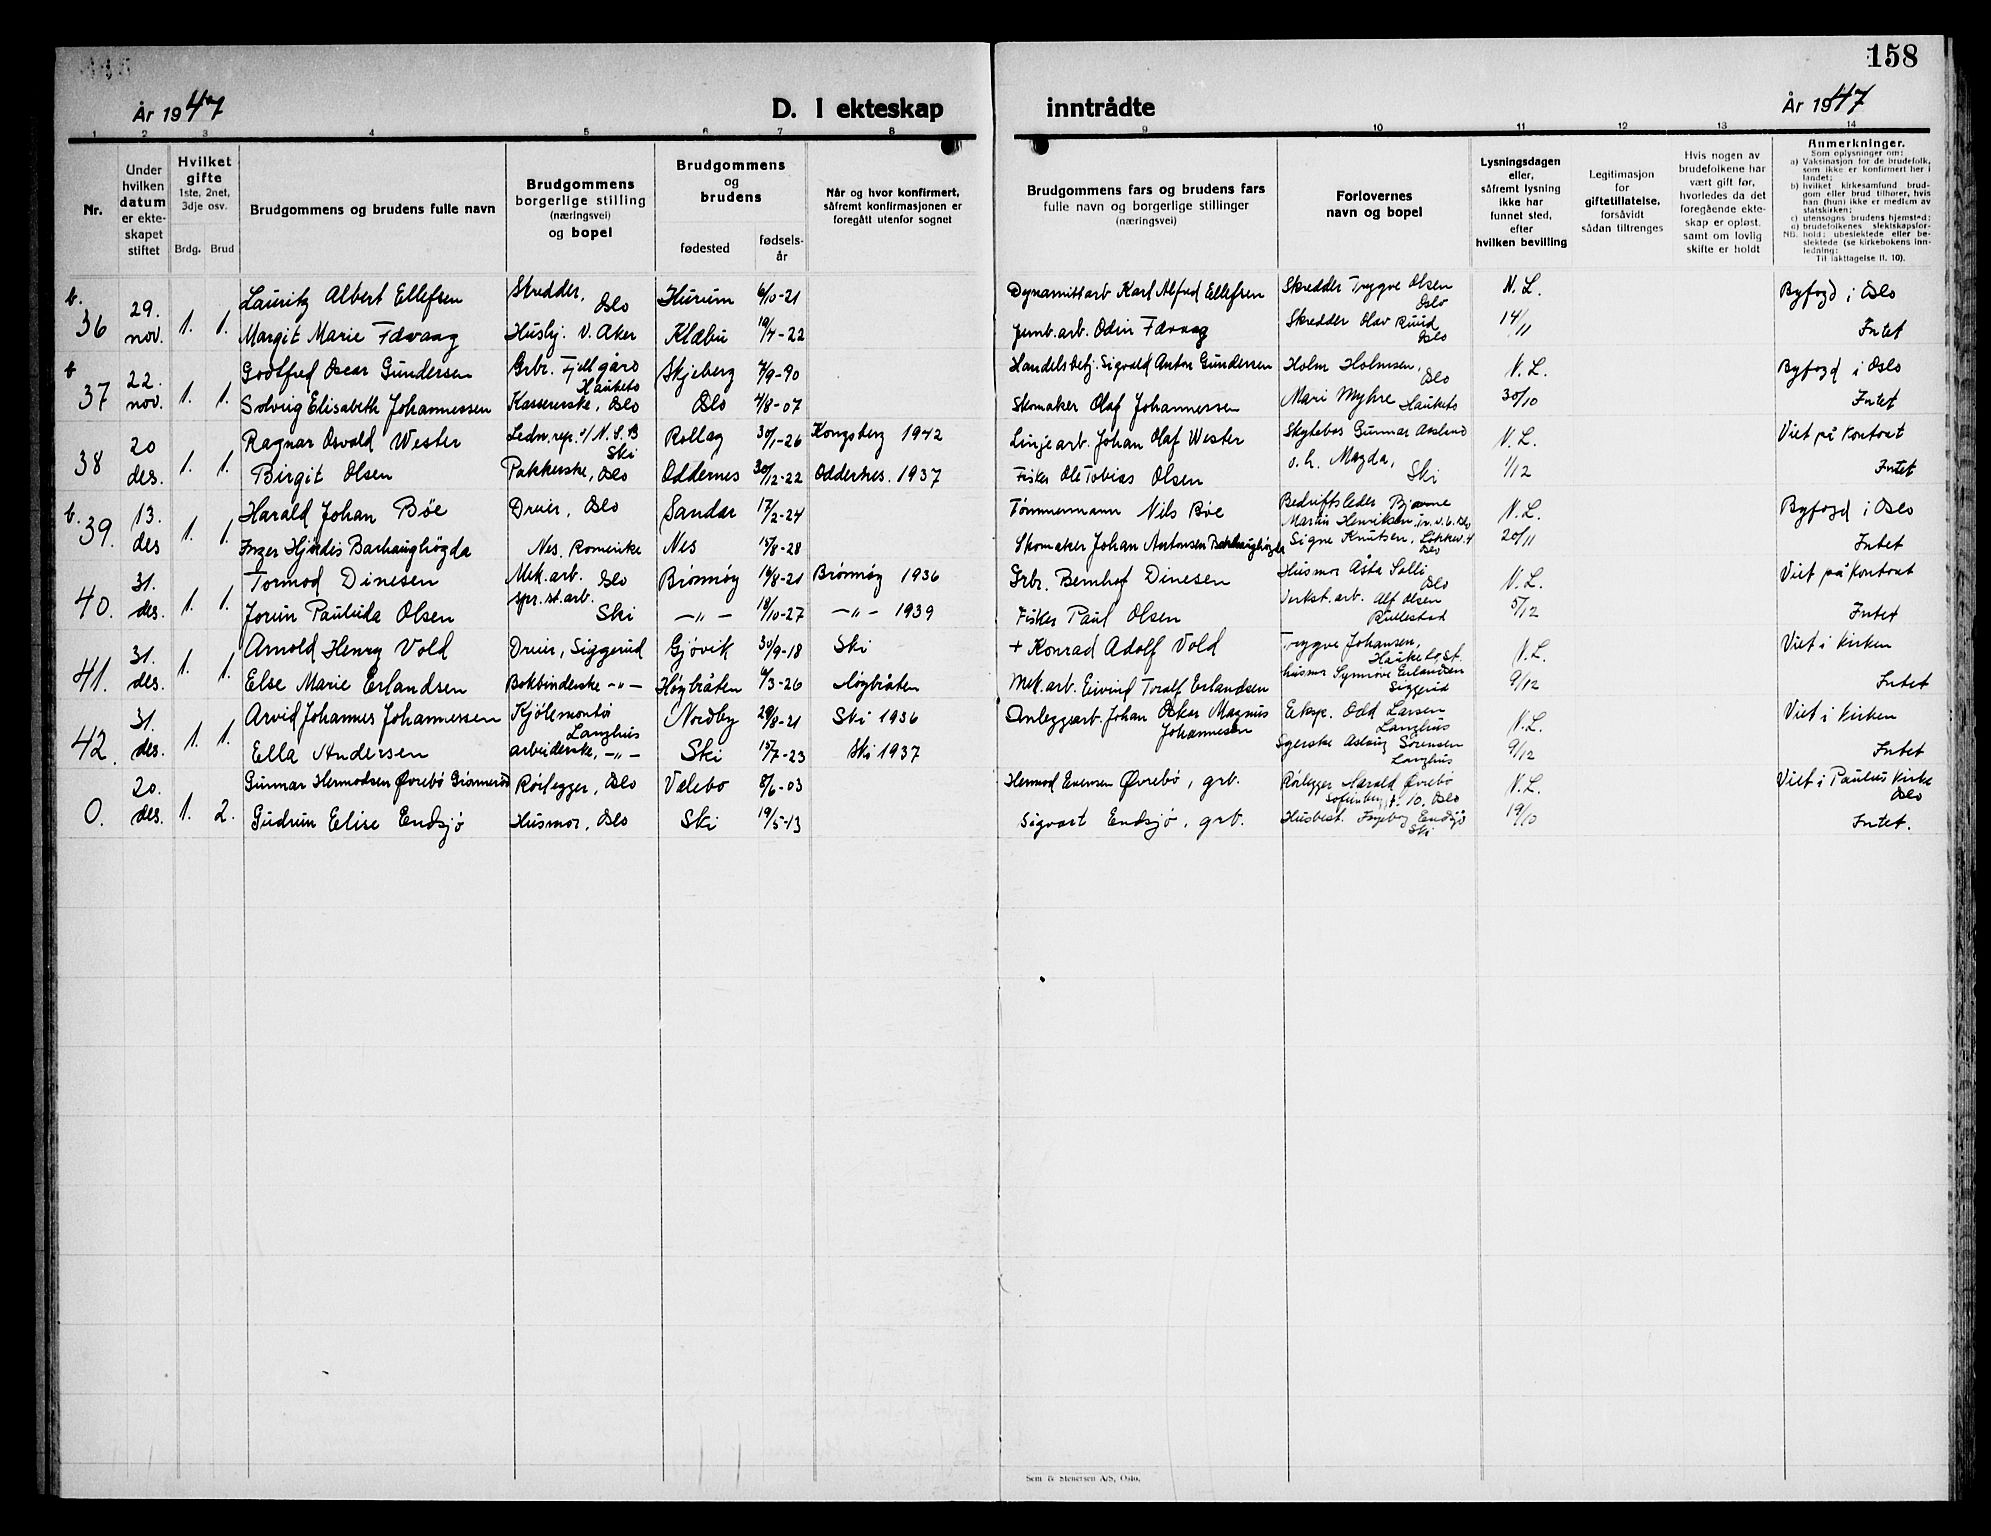 158
År 1947 D. I ekteskap inntrådte År 1947
1 2 3 4 5 6 7 8 9 10 11 12 13 14
Nr.
Under
hvilken
datum
er ekte-
skapet
stiftet
Hvilket
gifte
1ste, 2net,
3dje osv.
Brdg. Brud
Brudgommens og brudens fulle navn
Brudgommens
borgerlige stilling
(næringsvei)
og bopel
Brudgommens
og
brudens
fødested
fødsels-
år
Når og hvor konfirmert,
såfremt konfirmasjonen er
foregått utenfor sognet
Brudgommens fars og brudens fars
fulle navn og borgerlige stillinger
(næringsvei)
Forlovernes
navn og bopel
Lysningsdagen
eller,
såfremt lysning
ikke har
funnet sted,
efter
hvilken bevilling
Legitimasjon
for
giftetillatelse,
såfravidt
sådan tiltrenges
Hvis nogen av
brudefolkene har
vært gift før,
hvorledes da det
foregående ekte-
skap er opløst,
samt om lovlig
skifte er holdt
Anmerkninger.
Som oplysninger om:
a) Vaksinasjon for de brudefolk,
som ikke er konfirmert her i
landet;
b) hvilket kirkesamfund brud-
gom eller brud tilhører, hvis
han (hun) ikke er medlem av
statskirken;
c) utensogns brudens hjemsted;
d) brudefolkenes slektskapsfor-
hold: ubeslektede eller be-
slektede (se kirkebokens inn-
ledning:
Til iakttagelse II. 10).
b. 36 29. nov. 1. 1. Lauritz Albert Ellefsen Skredder, Oslo Hurum 6/10-21 Dynamittarb Karl Alfred Ellefsen Skredder Trygve Olsen Oslo N. L. Byfogd i Oslo
Margit Marie Fævaag Hushj. V. Aker Klæbu 19/7-22 Jernb.arb. Odin Fævaag Skredder Olav Ruud Oslo 14/11 Intet
b 37 22. nov. 1. 1. Gottfred Oscar Gundersen Grbr. Fjell gård Hauketo Skjeberg 7/9-90 Handelsbetj. Sigvald Anton Gundersen Holm Holmsen, Oslo N. L. Byfogd i Oslo
Solveig Elisabeth Johannessen Kassererske, Oslo Oslo 4/8-07 Skomaker Olaf Johannessen Mari Myhre Hauketo 30/10 Intet
38 20 des. 1. 1. Ragnar Osvald Wester Ledn.rep. v/ N.S.B Ski Rollag 30/1-26 Kongsberg 1942 Linjearb. Johan Olaf Wester Skytebas Gunnar Aasland N. L. Viet på Kontoret
Birgit Olsen Pakkerske, Oslo Oddernes 30/12-22 Oddernes. 1937 Fisker Ole Tobias Olsen o.h. Magda, Ski 1/12 Intet
b. 39. 13. des 1. 1. Harald Johan Bøe Dreier, Oslo Sandar 17/2-24 Tømmermann Nils Bøe Bedriftsleder Bjarne Martin Henriksen N. L. Byfogd i Oslo
Inger Hjørdis Barhaughøgda Nes, Romerike Nes 15/8-28 Skomaker Johan Antonsen Barhaughøgda Signe Knutsen, Løkkev. 4 Oslo 20/11 Intet
40. 31. des. 1. 1. Tormod Dinesen Mek.arb. Oslo Brønnøy 14/8-21 Brønnøy 1936 Grbr. Bernhof Dinesen Husmor Åsta Solli Oslo N. L. Viet på Kontoret
Jorun Paulida Olsen spr.st.arb. Ski —〃— 18/10-27 —〃— 1939 Fisker Paul Olsen Verkst.arb. Alf Olsen Rullestad 5/12 Intet
41. 31. des. 1. 1. Arnold Henry Vold Dreier, Siggerud Gjøvik 30/9-18 Ski + Konrad Adolf Vold Trygve Johansen, Hauketo St. N. L. Viet i Kirken
Else Marie Erlandsen Bokbinderske —〃— Høgbråten 6/3-26 Høgbråten Mek.arb. Eivind Toralf Erlandsen husmor Synnøve Erlandsen Siggerud 9/12 Intet
42. 31. des. 1. 1. Arvid Johannes Johannessen Kjølemontør Langhus Nordby 29/8-21 Ski 1936 Anleggsarb. Johan Oskar Magnus Johannesen Eksp. Odd Larsen Langhus N. L. Viet i Kirken
Ella Andersen arbeiderske, —〃— Ski 15/7-23 Ski 1937 Syerske Aslaug Sørensen Langhus 9/12 Intet
0. 20. des. 1. 2. Gunnar Hermodsen Øvrebø Grønnerød Rørlegger, Oslo Vålebø 8/6-03 Hermod Evensen Øvrebø, grb. Rørlegger Harald Øvrebø Sofienberg gt. 10, Oslo N. L. Viet i Paulus Kirke Oslo
Gudrun Elise Endsjø Husmor, Oslo Ski 19/5-13 Sigvart Endsjø, grb. Husbest. Ingeborg Endsjø Ski 19/10 Intet.
Sem & Stenersen A/S, Oslo.